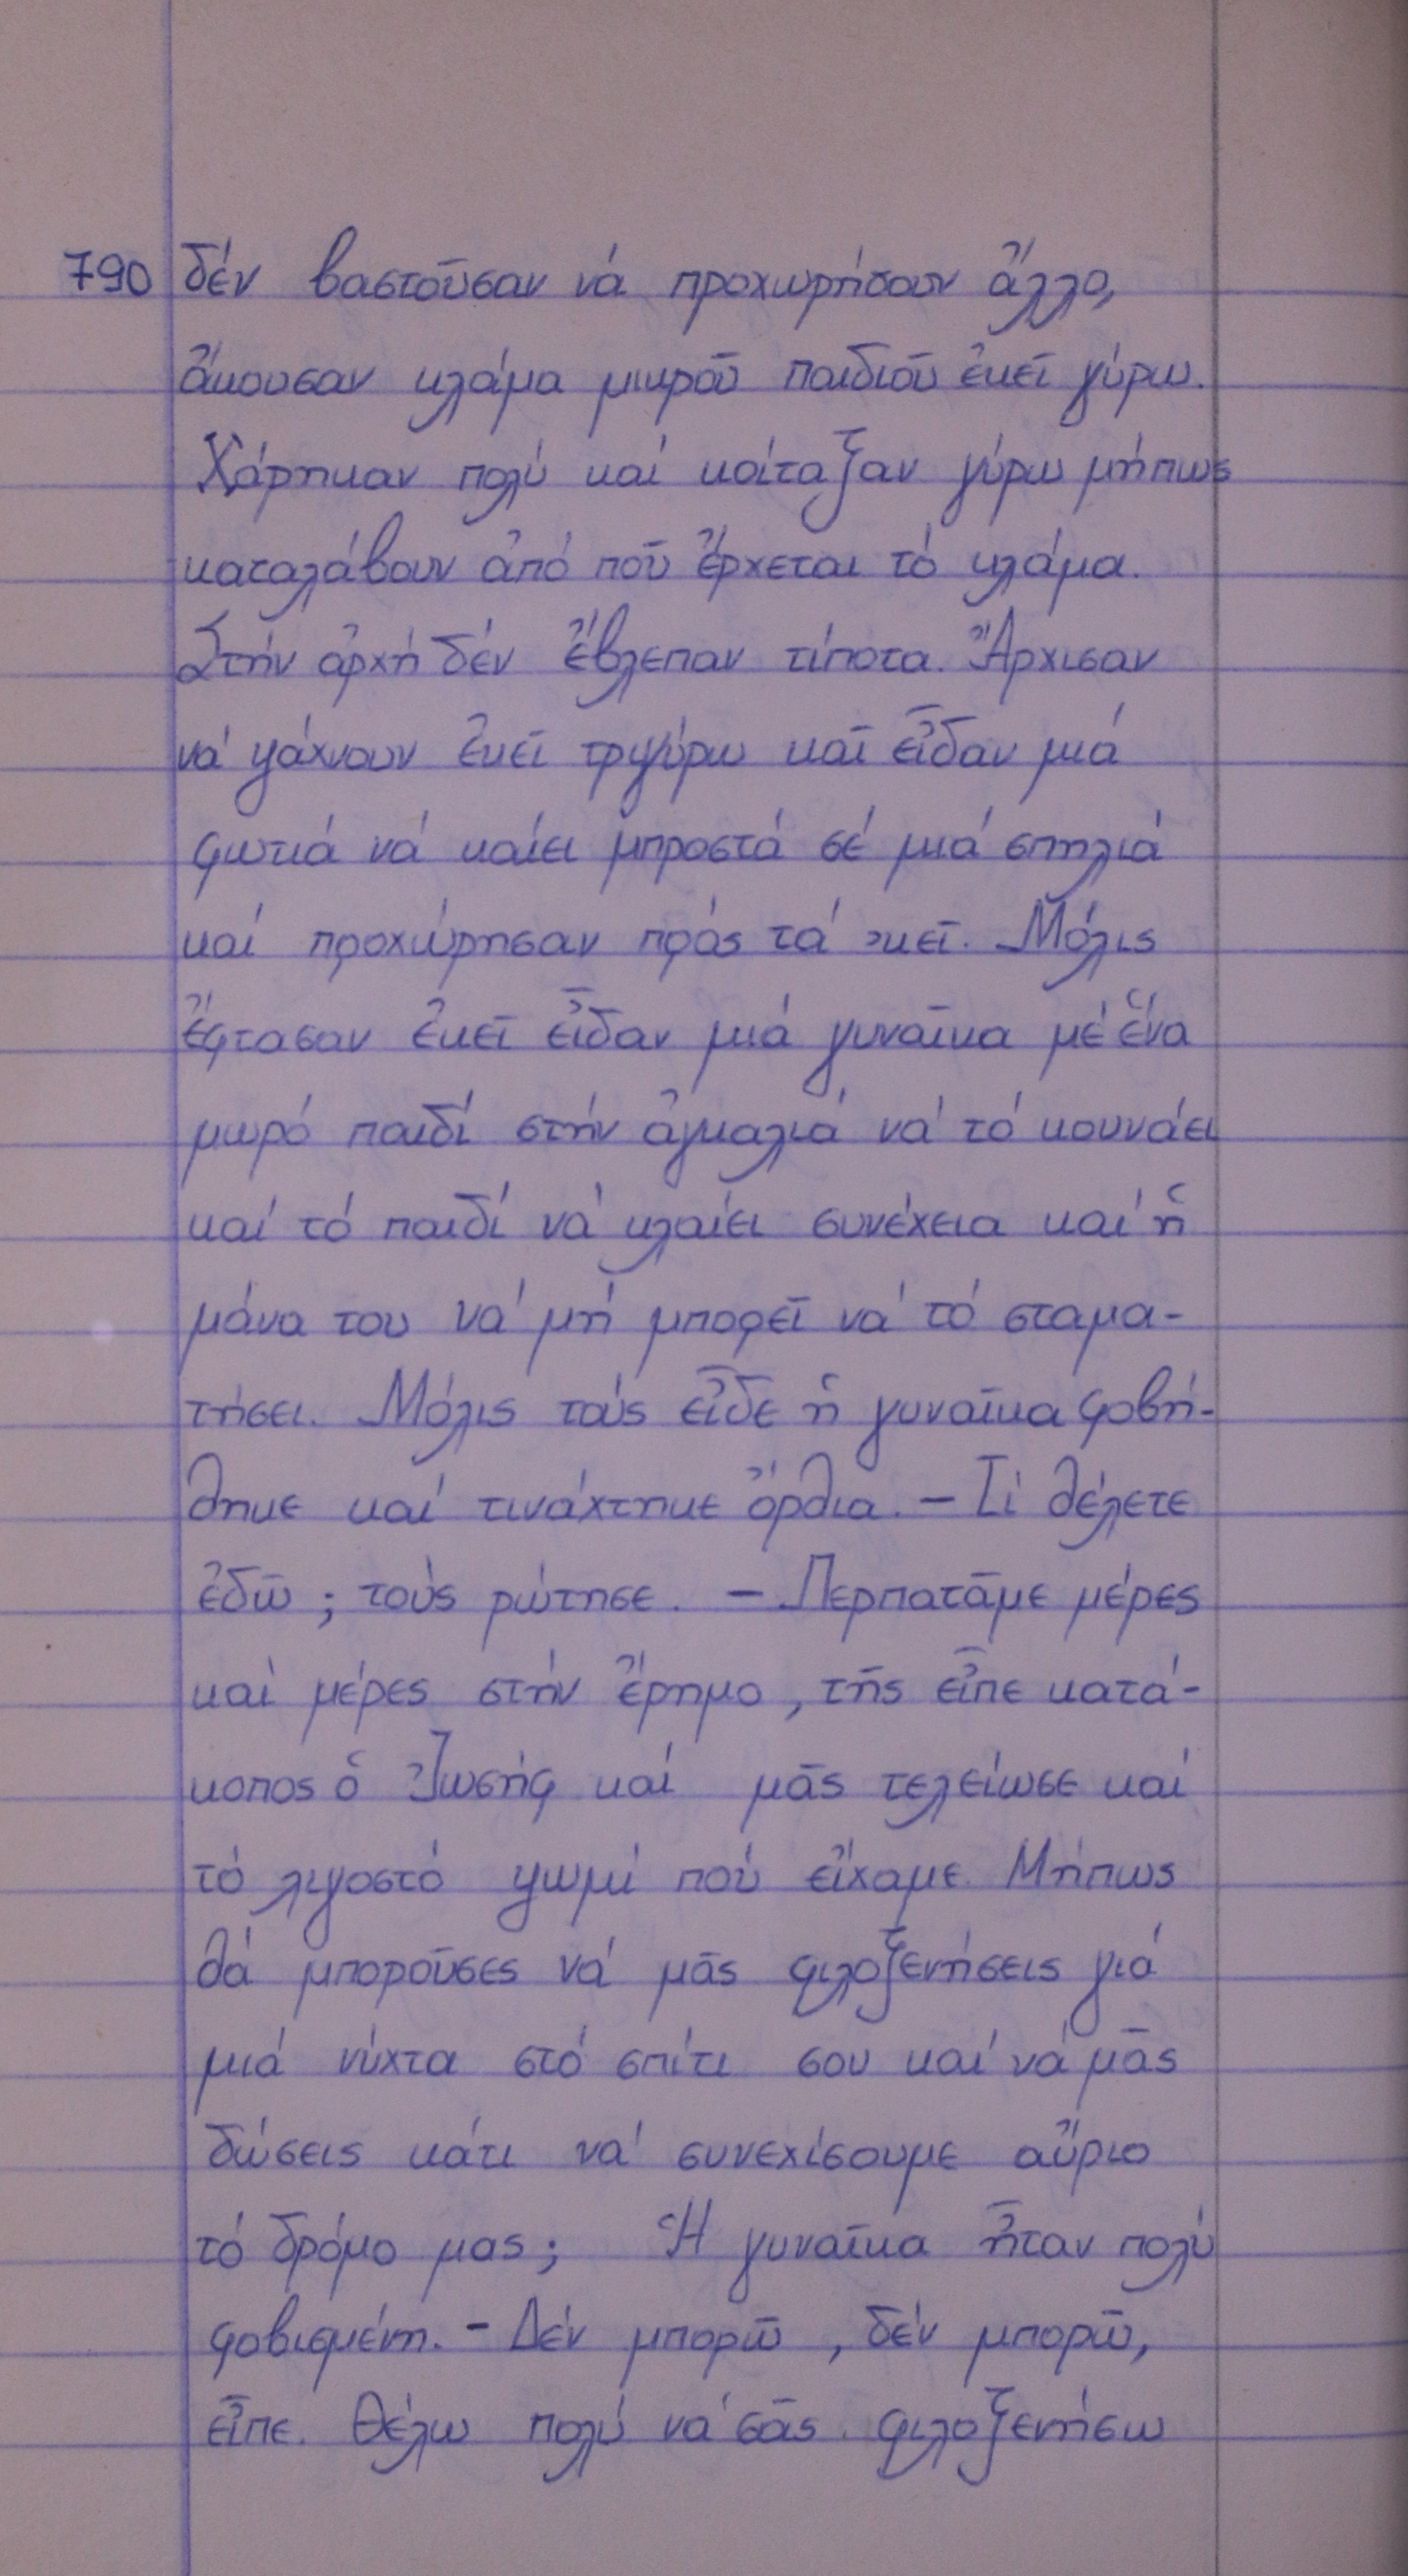 790 δέν βαστοῦσαν νά προχωρήσουν ἄλλο,
ἄκουσαν κλάμα μικροῦ παιδιοῦ ἐκεῖ γύρω.
Χάρηκαν πολύ καί κοίταξαν γύρω μήπως
καταλάβουν ἀπό ποῦ ἔρχεται τό κλάμα.
Στήν ἀρχή δέν ἔβλεπαν τίποτα. Ἄρχισαν
νά ψάχνουν ἐκεῖ τριγύρω καί εἶδαν μιά
φωτιά νά καίει μπροστά σέ μιά σπηλιά
καί προχώρησαν πρός τά 'κεῖ. Μόλις
ἔφτασαν ἐκεῖ εἶδαν μιά γυναῖκα μέ ἕνα
μωρό παιδί στήν ἀγκαλιά νά τό κουνάει
καί τό παιδί νά κλαίει συνέχεια καί ἡ
μάνα του νά μή μπορεῖ νά τό σταμα-
τήσει. Μόλις τούς εἶδε ἡ γυναῖκα φοβή-
θηκε καί τινάχτηκε ὄρθια. - Τί θέλετε
ἐδῶ ; τούς ρώτησε. - Περπατᾶμε μέρες
καί μέρες στήν ἔρημο, τῆς εἶπε κατά-
κοπος ὁ Ἰωσήφ καί μᾶς τελείωσε καί
τό λιγοστό ψωμί πού εἴχαμε. Μήπως
θά μποροῦσες νά μᾶς φιλοξενήσεις γιά
μιά νύχτα στό σπίτι σου καί νά μᾶς
δώσεις κάτι νά συνεχίσουμε αὔριο
τό δρόμο μας; Ἡ γυναῖκα ἦταν πολύ
φοβισμένη. - Δέν μπορῶ, δέν μπορῶ,
εἶπε. Θέλω πολύ νά σᾶς φιλοξενήσω